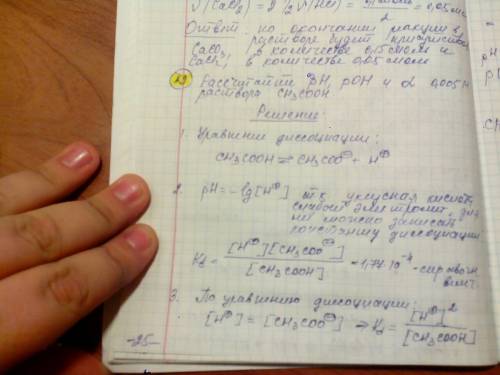 Ответ: по окончании реакции в
растворе будет присутствовать
CaCO₃, в количестве 0,15 моль и
в количестве 0,05 моль
29 Рассчитайте pH, pOH и α 0,005М
раствора CH₃COOH
Решение:
1. Уравнение диссоциации:
CH₃COOH ⇌ CH₃COO⊖ + H⊕
2. pH = -lg[H⊕] т.к. уксусная кислота
слабый электролит, для
неё можно записать
константу диссоциации
Kд = [H⊕][CH₃COO⊖] / [CH₃COOH] = 1,74·10⁻⁵
3. По уравнению диссоциации:
[H⊕] = [CH₃COO⊖] ⇒ Kд = [H⊕]² / [CH₃COOH]
-25-